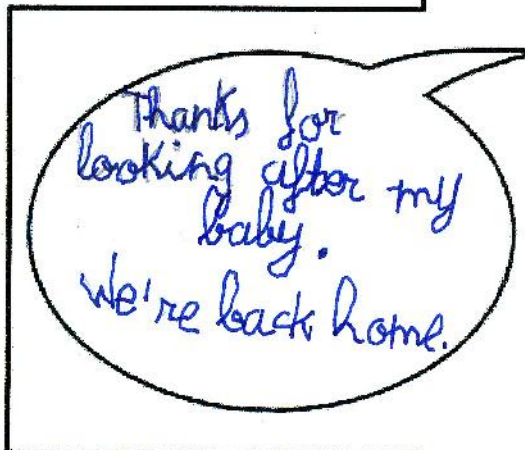 Thanks for
looking after my
baby.
We're back home.